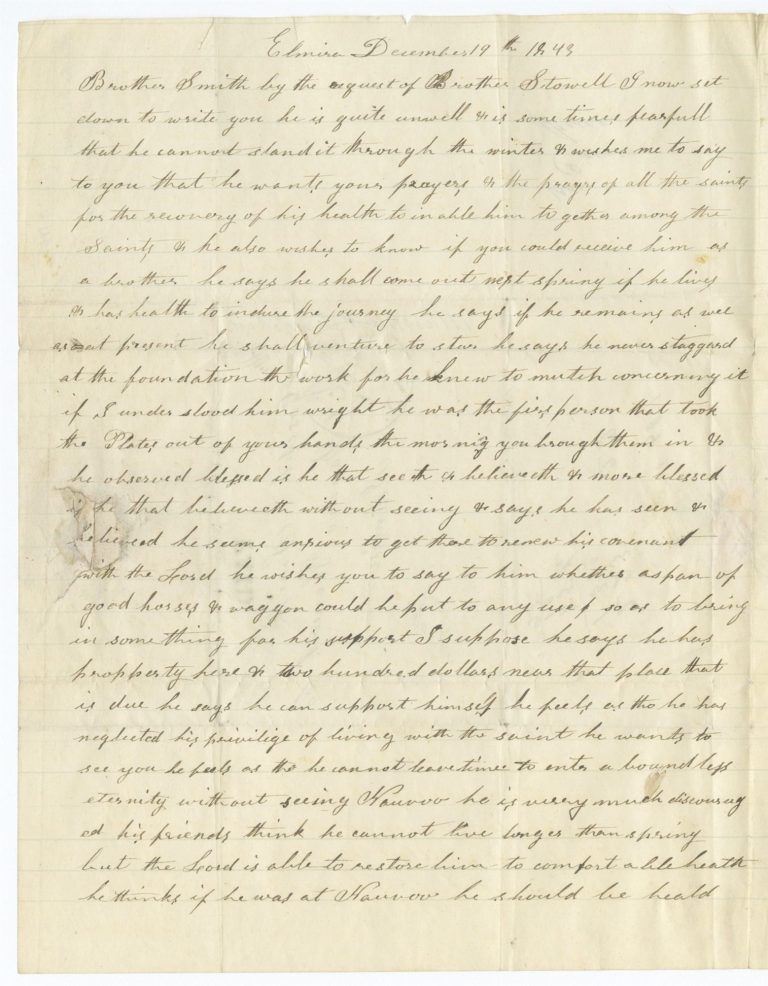 Elmira December 19th 1843
Brother Smith by the request of Brother Stowell I now set
down to write you he is quite unwell & is some times fearfull
that he cannot stand it through the winter & wishes me to say
to you that he wants your prayers & the prayrs of all the saints
for the recovery of his health to inable him to gether among the
Saints & he also wishes to know if you could receive him as
a brother he says he shall come out next spring if he lives
& has health to indure the journey he says if he remains as well
as at present he shall venture to star he says he never staggard
at the foundation the work for he knew to mutch concerning it
if I under stood him wright he was the firs person that took
the Plates out of your hands the mornig you brough them in &
he observed blessed is he that seeth & believeth & more blessed
is he that believeth without seeing & says he has seen &
believed he seems anxious to get there to renew his covenant
with the Lord he wishes you to say to him whether a span of
good horses & waggon could be put to any use so as to bring
in something for his support I suppose he says he has
propperty here & two hundred dollars near that place that
is due he says he can support himself he feels as tho he has
neglected his privilige of living with the saint he wants to
see you he feels as tho he cannot leave time to enter a boundless
eternity without seeing Nauvoo he is verry much discourag
ed his friends think he cannot live longer than spring
but the Lord is able to restore him to comfortable heath
he thinks if he was at Nauvoo he should be heald